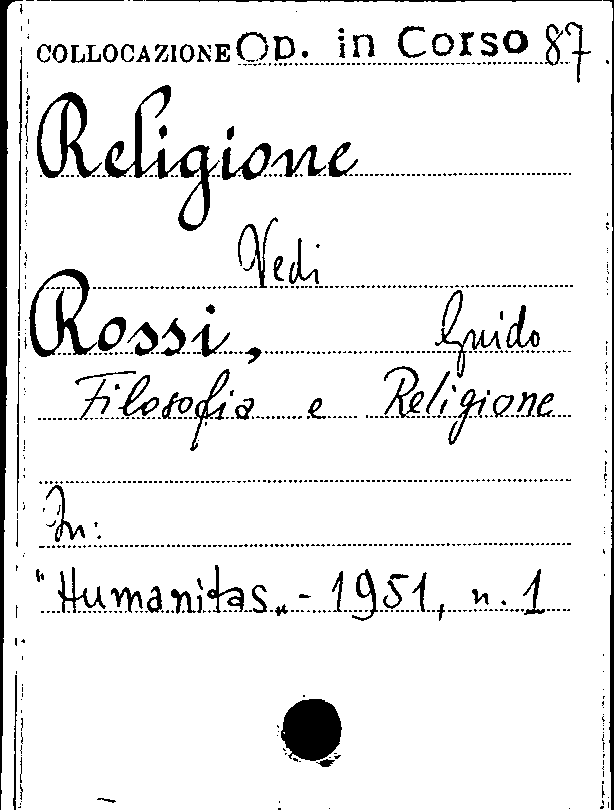 COLLOCAZIONE Op. in Corso 87
Religione
Vedi
Rossi, Guido
Filosofia e Religione
In:
"Humanitas„ - 1951, n. 1